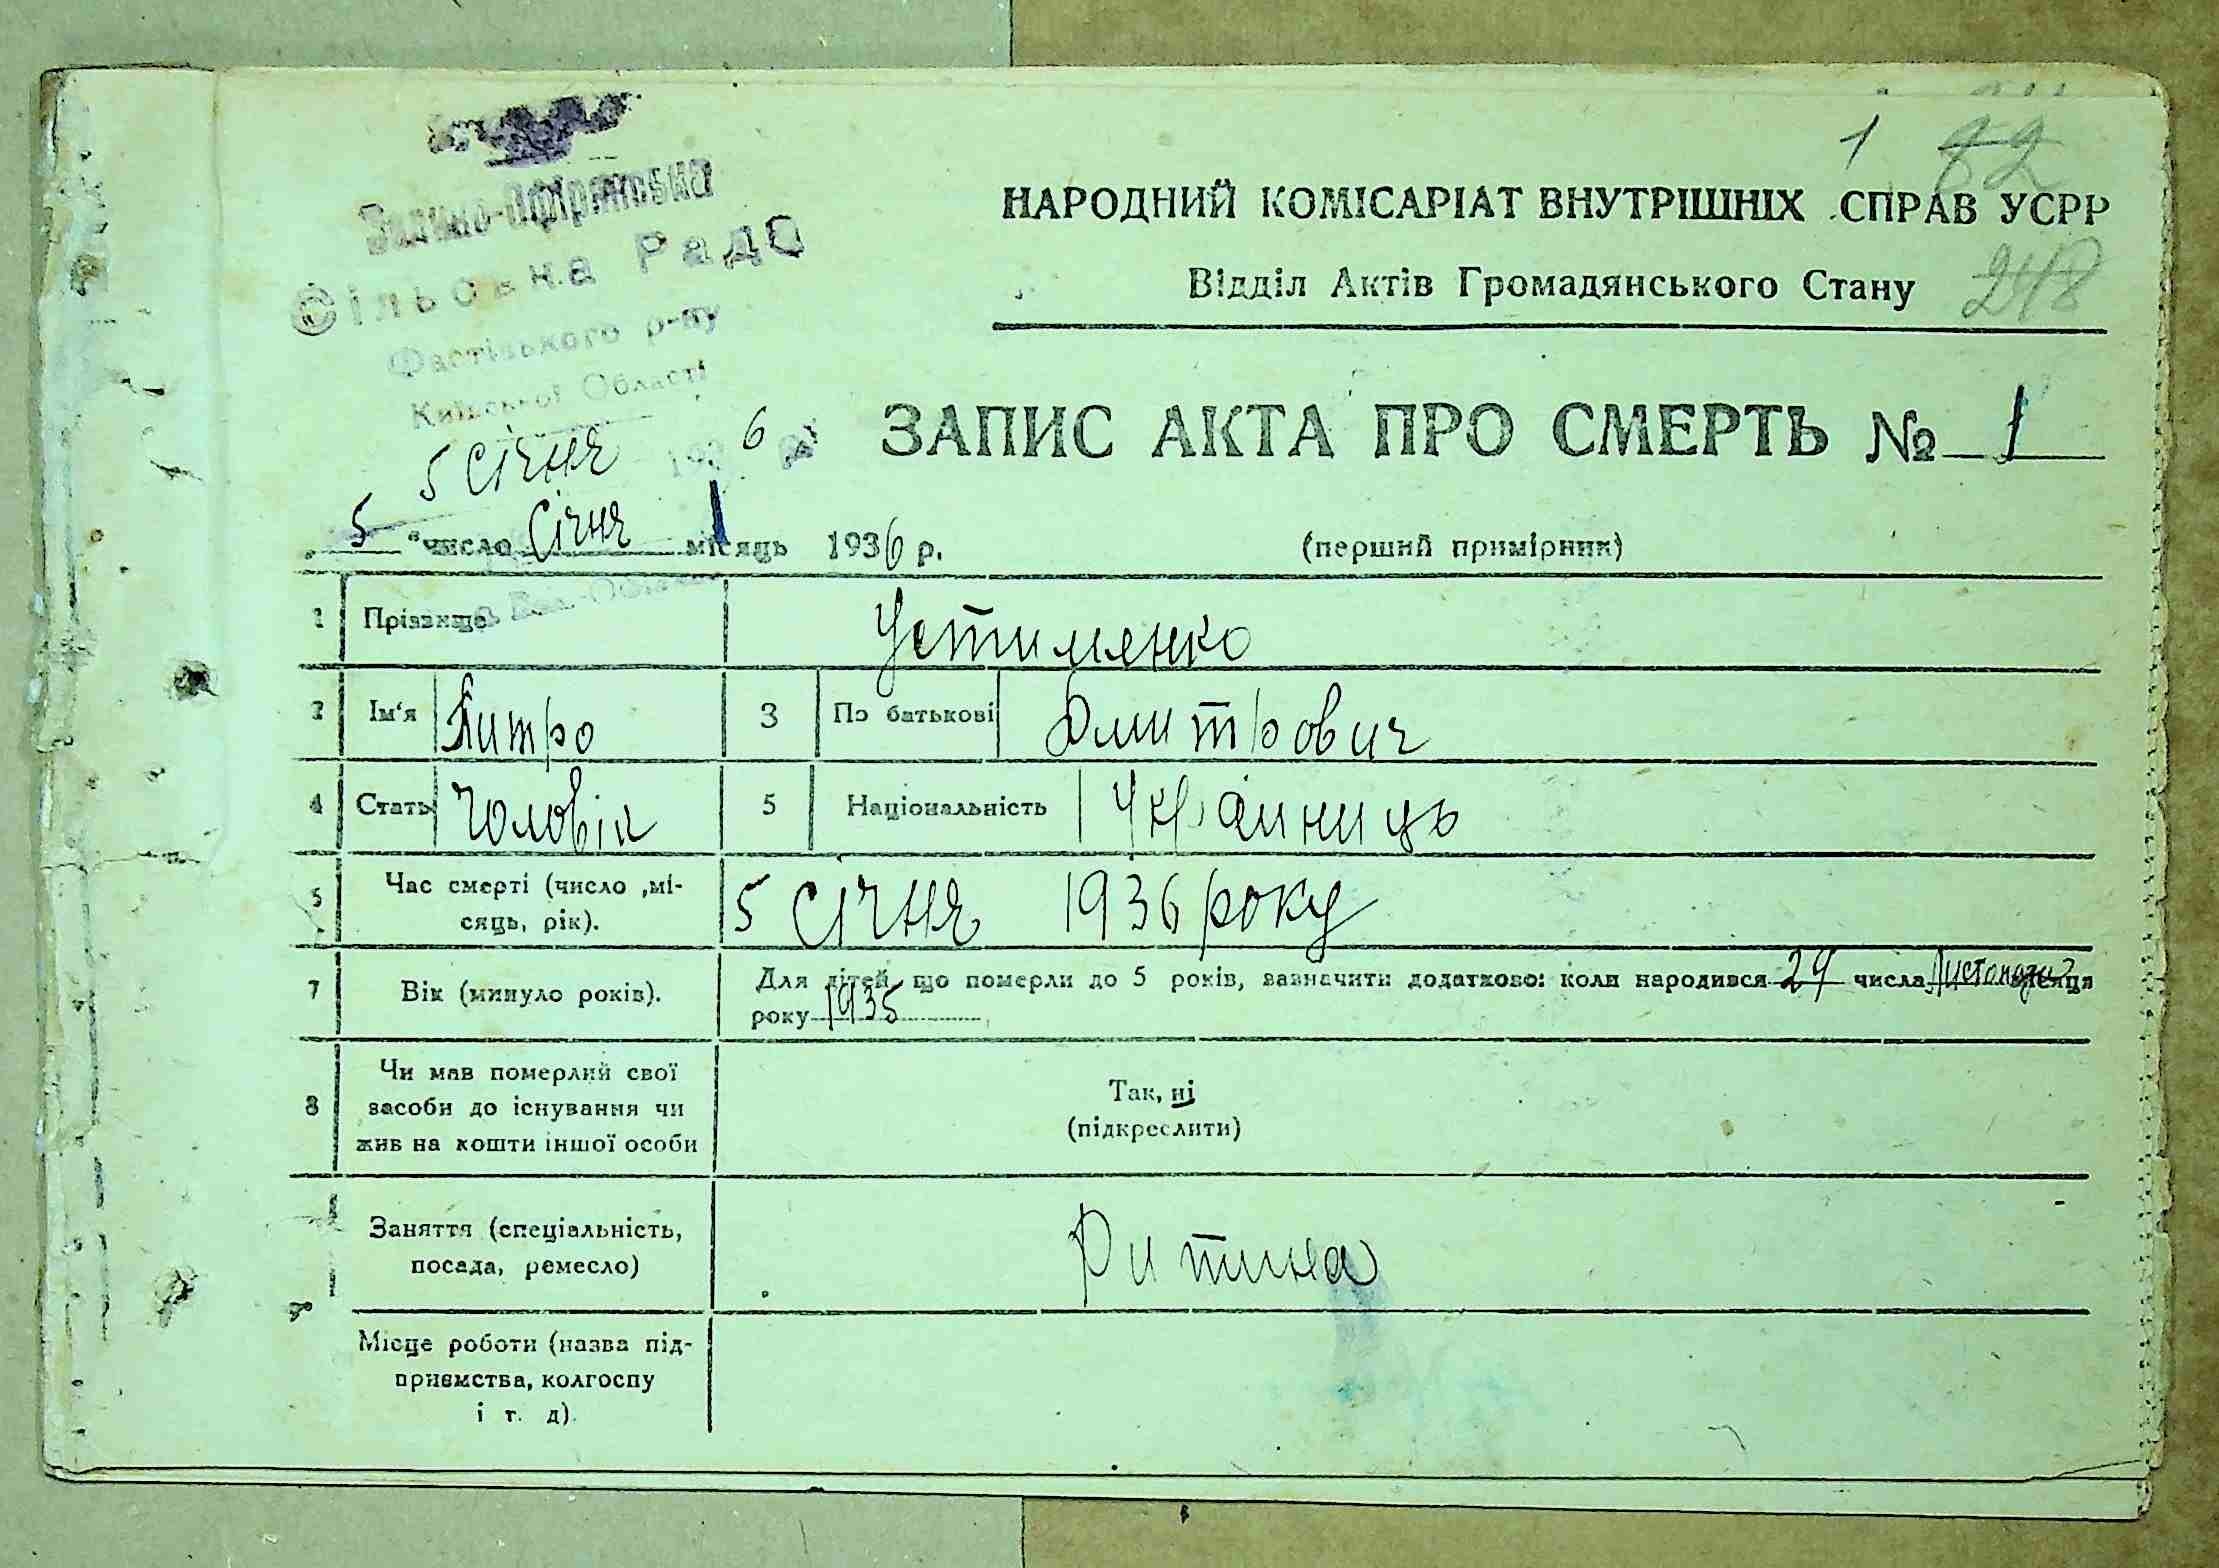 1 82
НАРОДНИЙ КОМІСАРІАТ ВНУТРІШНІХ СПРАВ УСРР
Відділ Актів Громадянського Стану 248
Сільська Рада
Фастівського р-ну
Київської Області
5 Січня 193 6 р.
ЗАПИС АКТА ПРО СМЕРТЬ № 1
5 число Січня місяць 1936 р. (перший примірник)
1 Прізвище Устименко
2 Ім'я Питро 3 По батькові Дмитрович
4 Стать Чоловік 5 Національність Украйниць
5 Час смерті (число ,мі-
сяць, рік). 5 Січня 1936 року
7 Вік (минуло років). Для дітей що померли до 5 років, зазначити додатково: коли народився 29 числа Листопада місяця
року 1935
8 Чи мав померлий свої
засоби до існування чи
жив на кошти іншої особи
Так, ні
(підкреслити)
Заняття (спеціальність,
посада, ремесло) Ритина
Місце роботи (назва під-
приємства, колгоспу
і т. д).